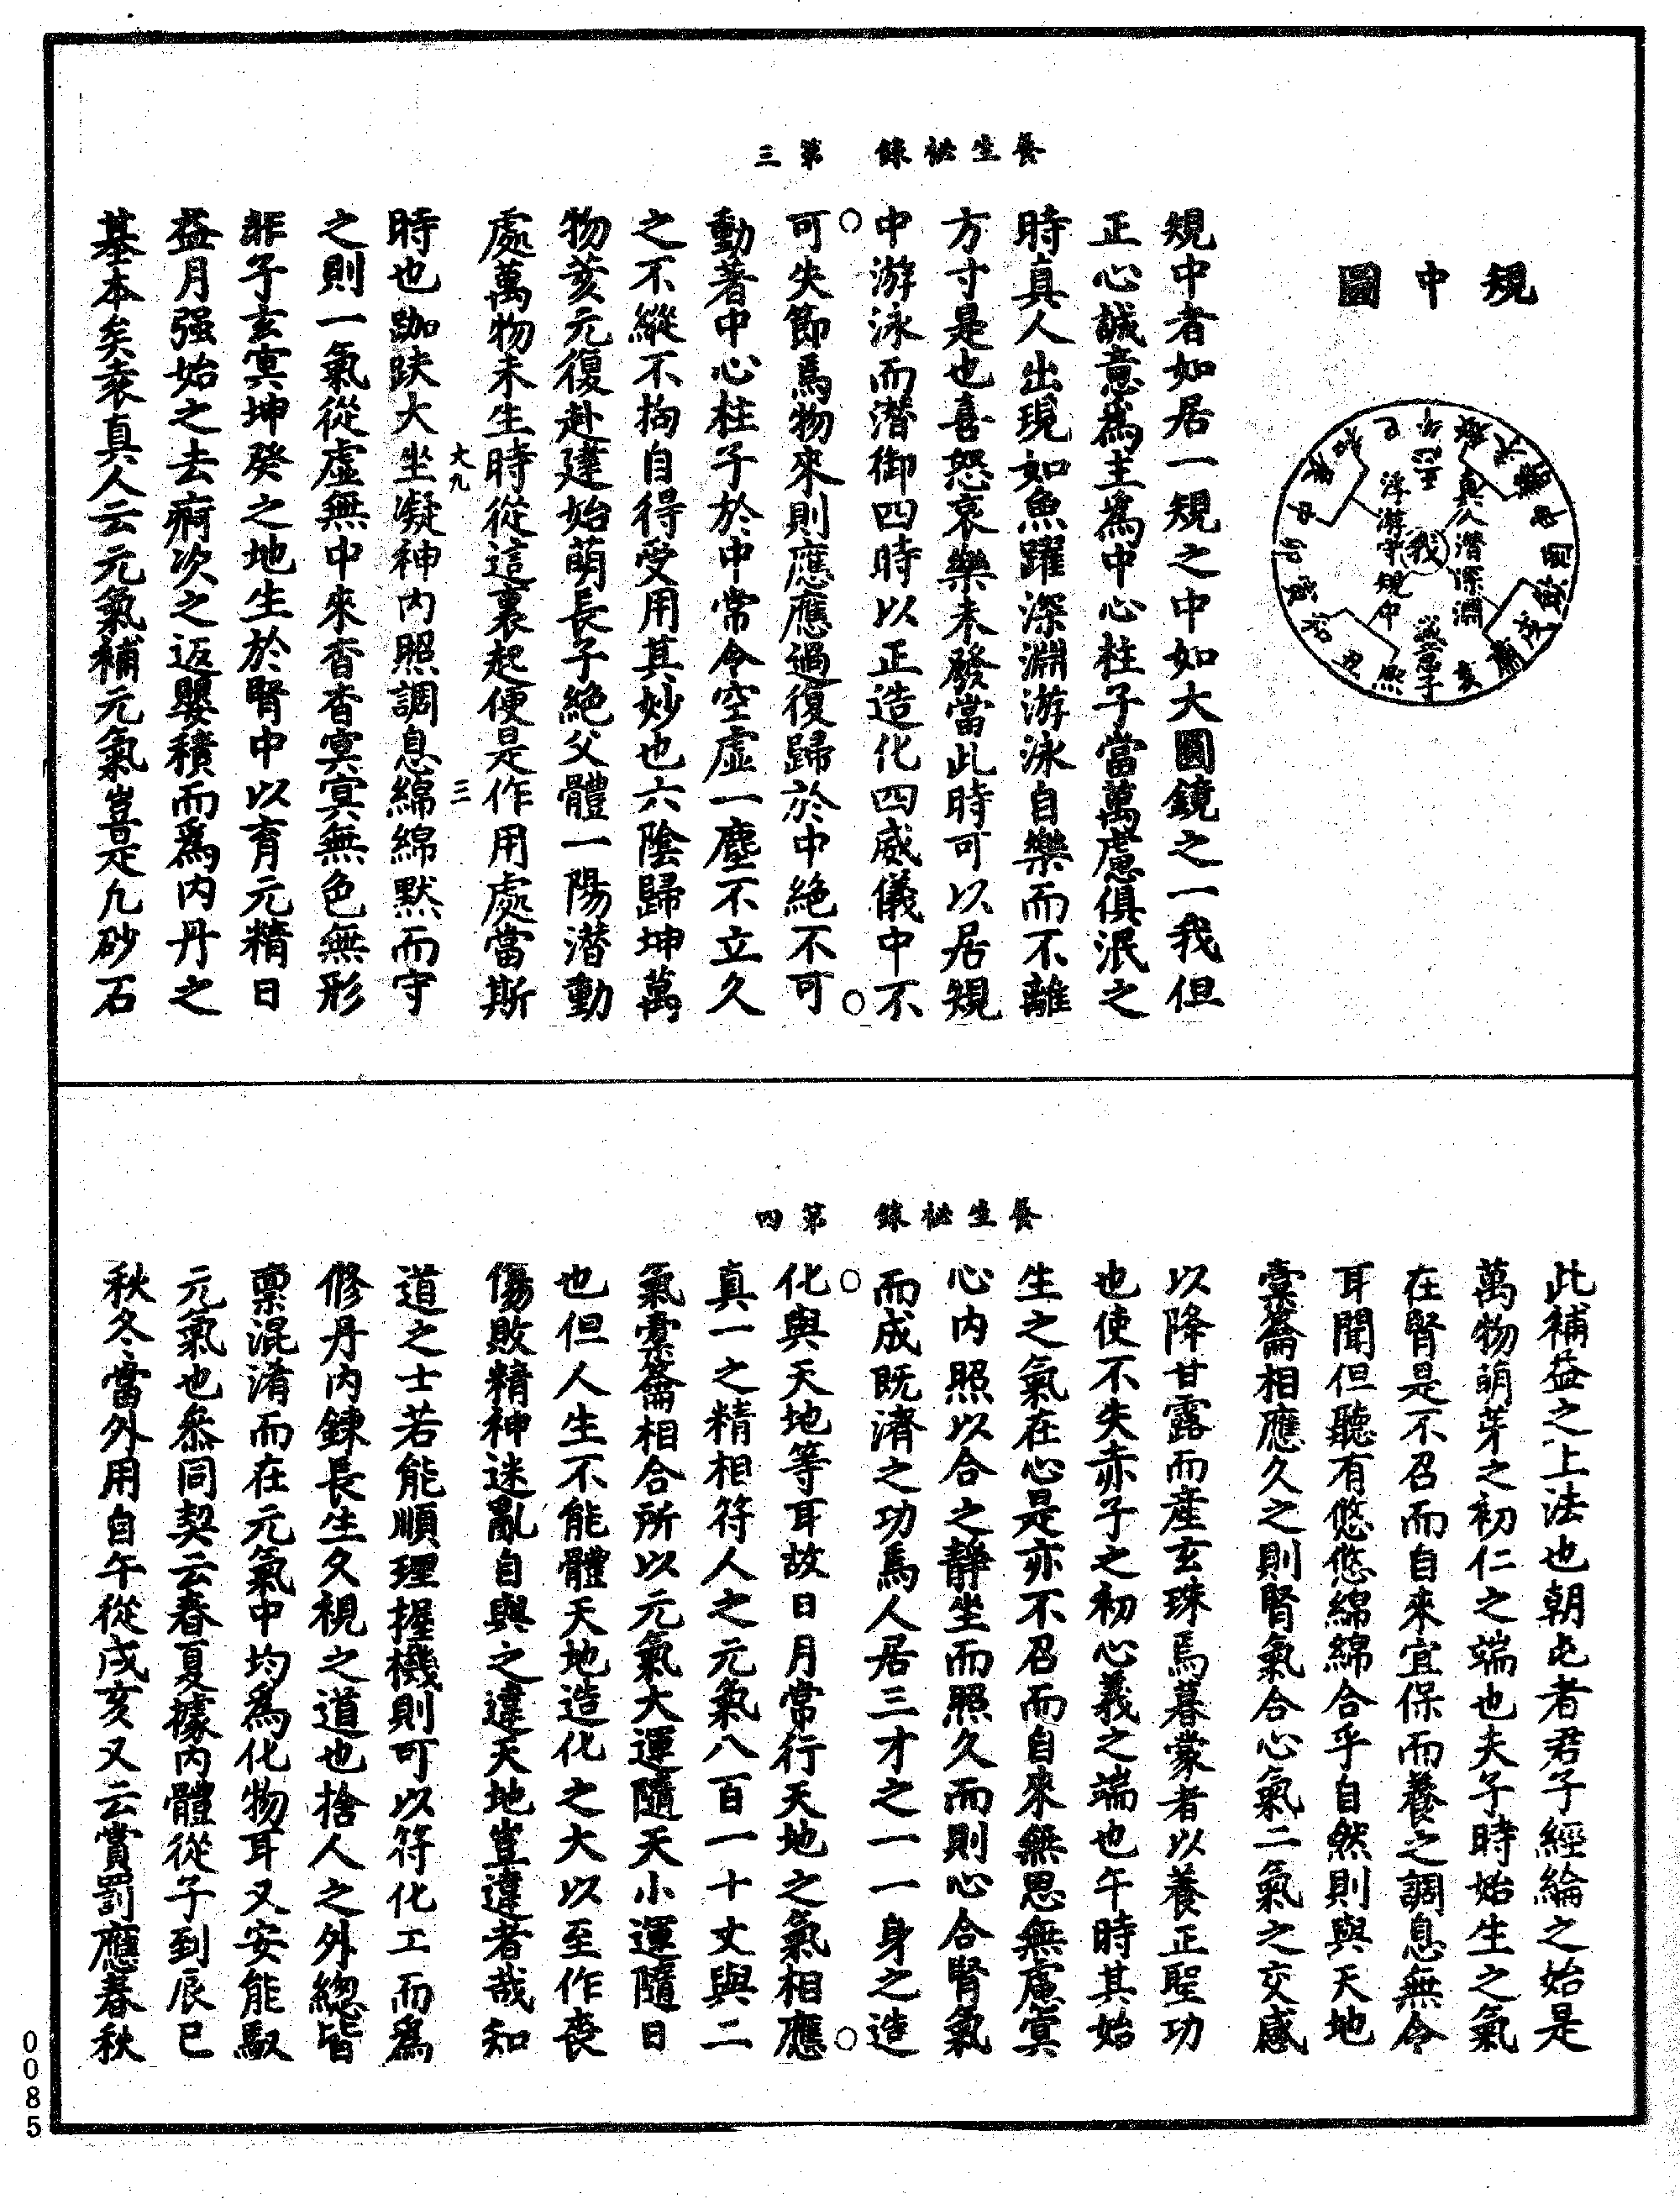 養生祕錄　第三
規中圖
真人潛深淵
浮游守規中
我
規中者如居一規之中如大圓鏡之一我但
正心誠意為主為中心柱子當萬慮俱泯之
時真人出現如魚躍深淵游泳自樂而不離
方寸是也喜怒哀樂未發當此時可以居規
中游泳而潛御四時以正造化四威儀中不
可失節焉物來則應應過復歸於中絶不可
動著中心柱子於中常令空虛一塵不立久
之不縱不拘自得受用其妙也六陰歸坤萬
物亥元復赴建始萌長子絶父體一陽潛動
處萬物未生時從這裏起便是作用處當斯
大九　三
時也跏趺大坐凝神內照調息綿綿默而守
之則一氣從虛無中來杳杳冥冥無色無形
兆子玄冥坤癸之地生於腎中以育元精日
益月强始之去痾次之返嬰積而爲内丹之
基本矣袁真人云元氣補元氣豈是凡砂石
養生祕錄　第四
此補益之上法也朝屯者君子經綸之始是
萬物萌芽之初仁之端也夫子時始生之氣
在腎是不召而自來宜保而養之調息無令
耳聞但聽有悠悠綿綿合乎自然則與天地
橐籥相應久之則腎氣合心氣二氣之交感
以降甘露而產玄珠焉暮蒙者以養正聖功
也使不失赤子之初心義之端也午時其始
生之氣在心是亦不召而自來無思無慮冥
心內照以合之靜坐而照久而則心合腎氣
而成既濟之功焉人居三才之一一身之造
化與天地等耳故日月常行天地之氣相應
真一之精相符人之元氣八百一十丈與二
氣橐籥相合所以元氣大運隨天小運隨日
也但人生不能體天地造化之大以至作喪
傷敗精神迷亂自與之違天地豈違者哉知
道之士若能順理握機則可以符化工而爲
修丹内鍊長生久視之道也捨人之外總皆
稟混淆而在元氣中均爲化物耳又安能馭
元氣也叅同契云春夏據內體從子到辰巳
秋冬當外用自午從戌亥又云賞罰應春秋
0085